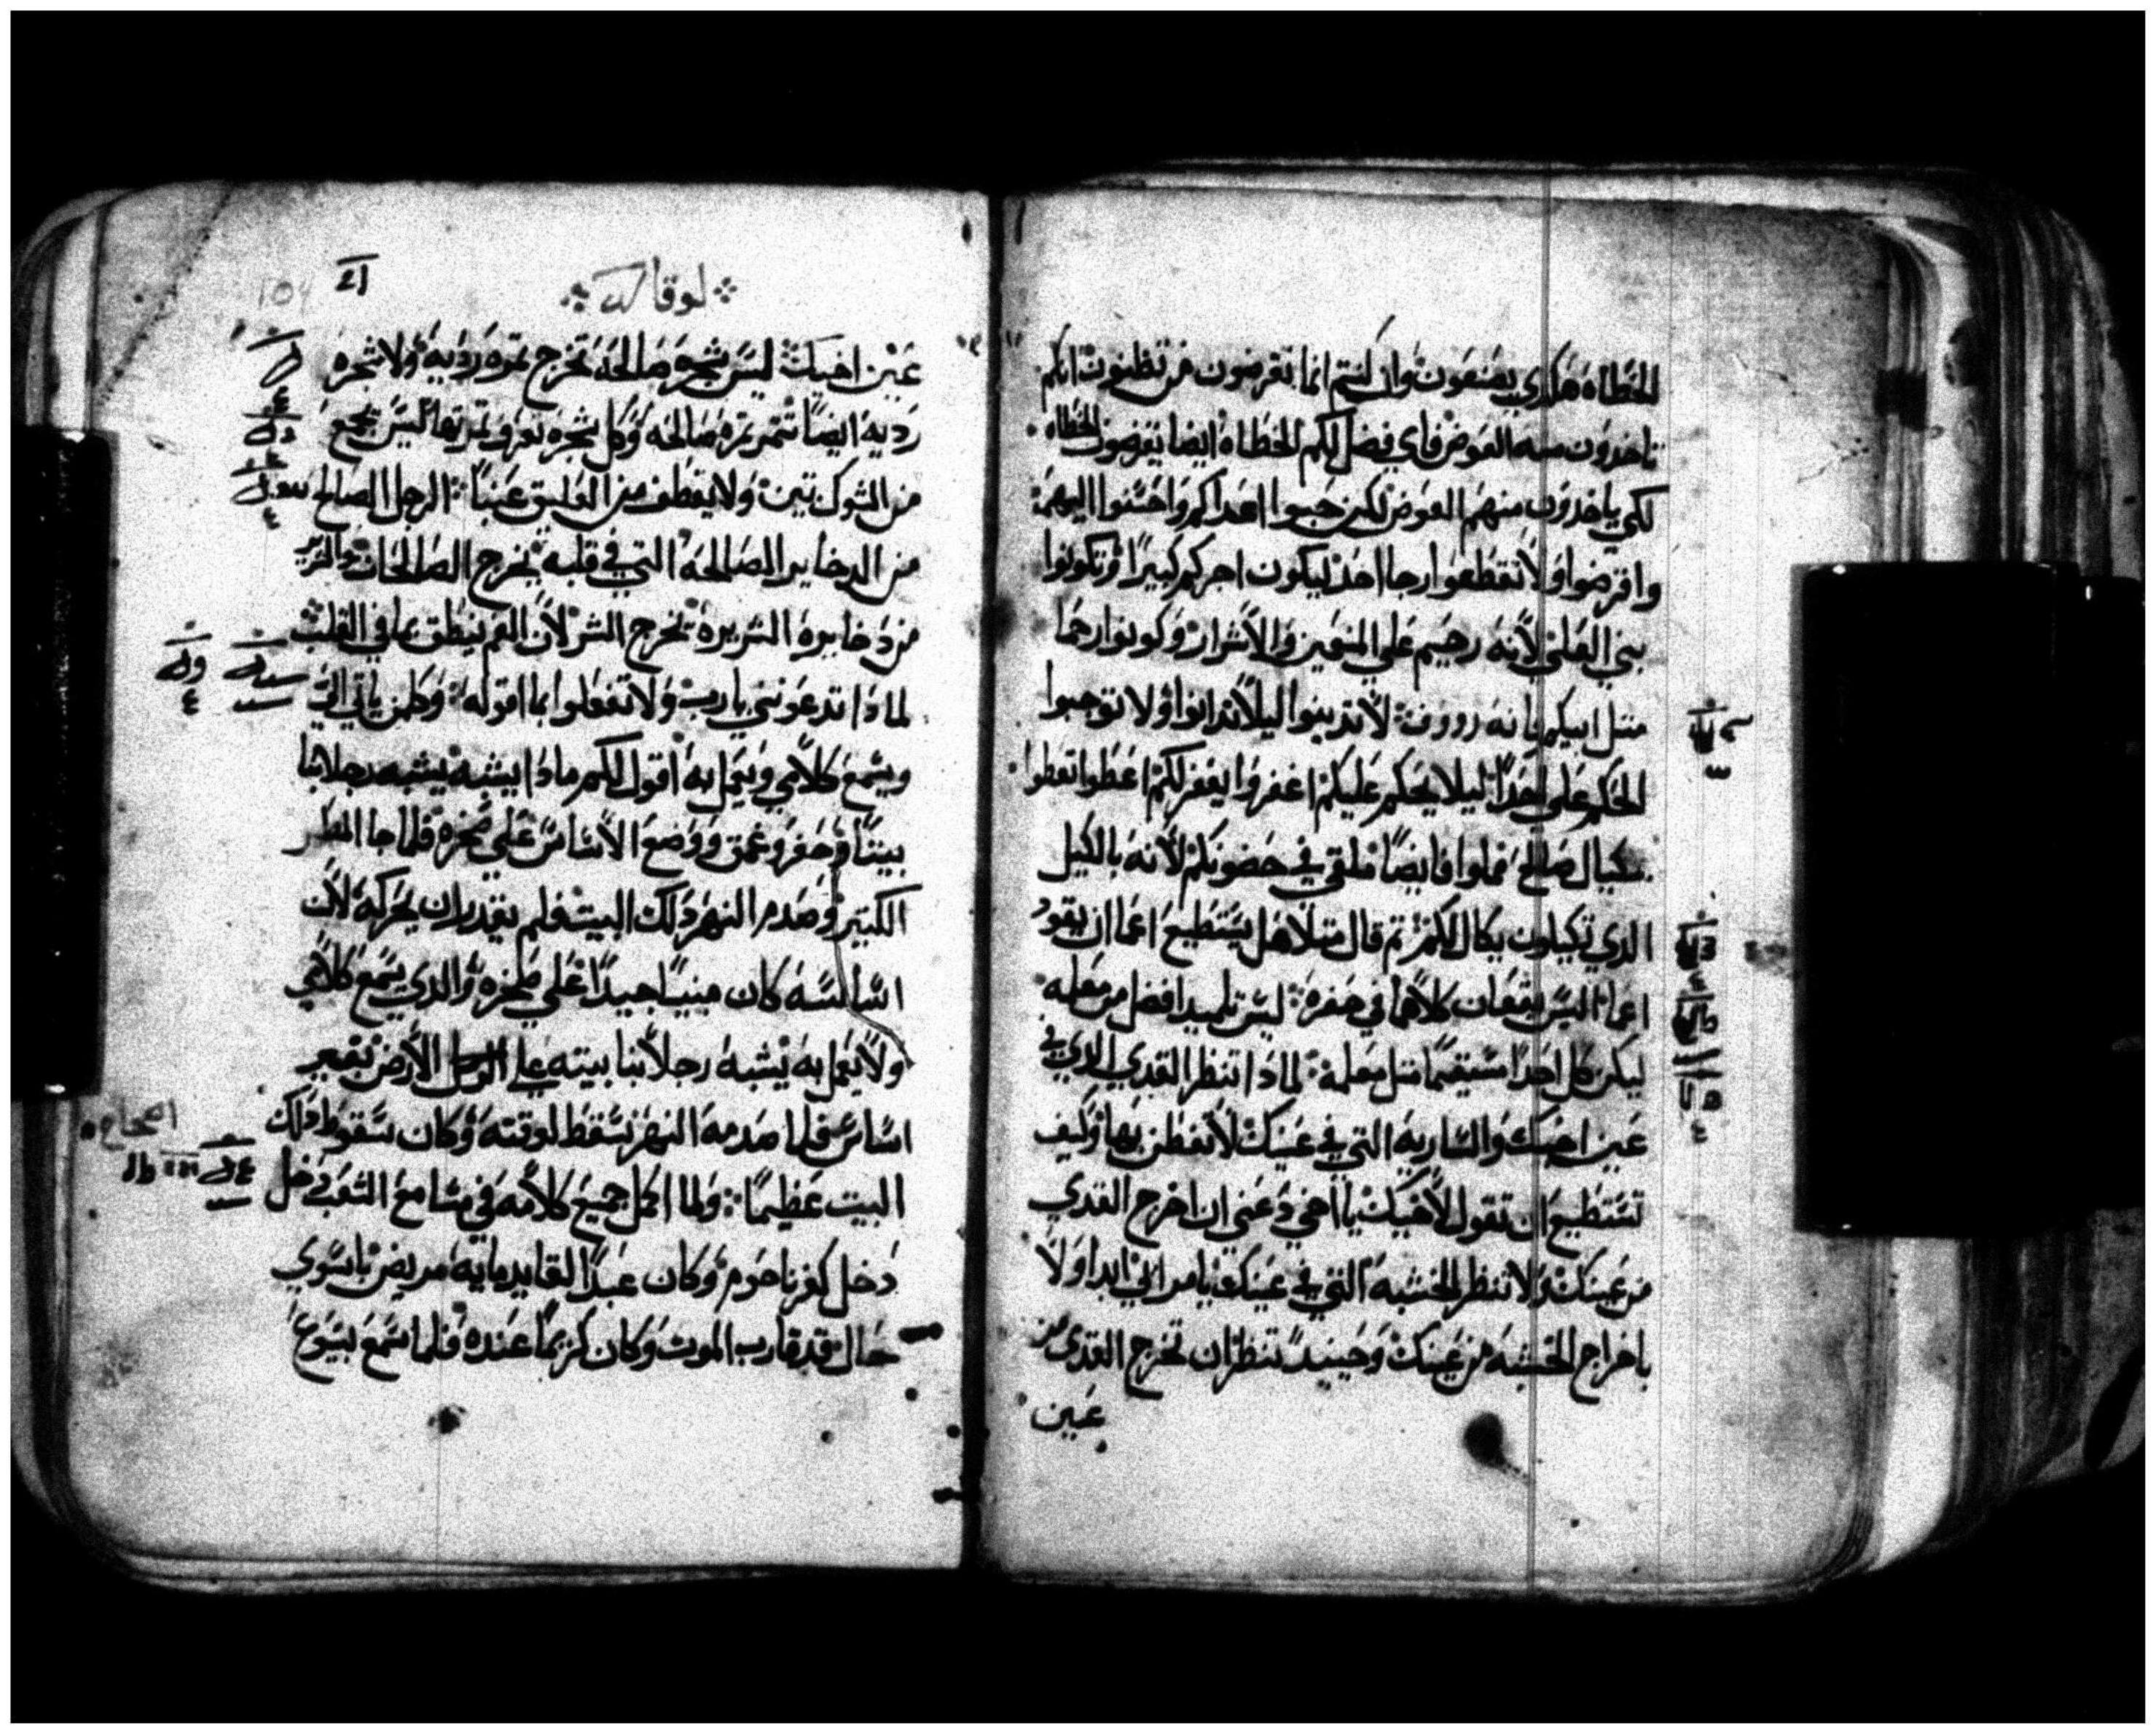 الخطاه هكدي يصنعون وان كنتم انما تقرضون من تظنون انكم
تاخدون منه العوض فاي فضل لكم الخطاه ايضا يقرضون الخطاه
لكي ياخدون منهم العوض لكن حبوا اعداكم واحسنوا اليهم
واقرضوا ولا تقطعوا رجا احد ليكون اجركم كبيرا وتكونوا
بني العلي لانه رحيم علي المنعمين والاشرار وكونوا رحما
متل ابيكم بانه رووف لا تدينوا ليلا تدانوا ولا توجبوا
الحكم علي احدا ليلا يحكم عليكم اغفروا يغفر لكم اعطوا تعطوا
مكيال صالح مملوا فايضا ملقي في حضونكم لانه بالكيل
الدي تكيلون يكال لكم تم قال متلا هل يستطيع اعما ان يقود
اعما اليس يقعان كلاهما في حفره ليس تلميدا افضل من معلمه
ليكن كل احدا مستقيما متل معلمه لمادا تنظر القدي الدي في
عين اخيك والساريه التي في عينك لا تفطن بها وكيف
تستطيع ان تقول لاخيك يا اخي دعني ان اخرج القدي
من عينك ولا تنظر الخشبه التي في عينك يا مرابي ابدا اولا
باخراج الخشبه من عينك وحينيد تنظر ان تخرج القدي من
عين
لوقا
عين اخيك ليس شجره صالحه تخرج تمره رديه ولا شجره
رديه ايضا تتمر تمره صالحه وكل شجره تعرف من تمرتها ليس يجمع
من الشوك تين ولا يقطف من العليق عنبا الرجل الصالح
من الدخاير الصالحه التي في قلبه يخرج الصالحات والشرير
من دخايره الشريره يخرج الشر لان الفم ينطق بما في القلب
لمادا تدعونني يارب ولا تفعلوا بما اقوله وكلمن ياتي الي
ويسمع كلامي ويعمل به اقول لكم مادا يشبه يشبه رجلا بنا
بيتا وحفر وعمق ووضع الاساس علي صخره فلما جا المطر
الكتير وصدم النهر دلك البيت فلم يقدر ان يحركه لان
اساسه كان مبنيا جيدا علي صخره والدي يسمع كلامي
ولا يعمل به يشبه رجلا بنا بيته علي الارض بغير
اساس فلما صدمه النهر سقط لوقته وكان سقوط دلك
البيت عظيما ولما اكمل جميع كلامه في مسامع الشعب دخل
دخل كفرناحوم وكان عبدا لقايد مايه مريض باسوي
حال قد قارب الموت وكان كريما عنده فلما سمع بيسوع